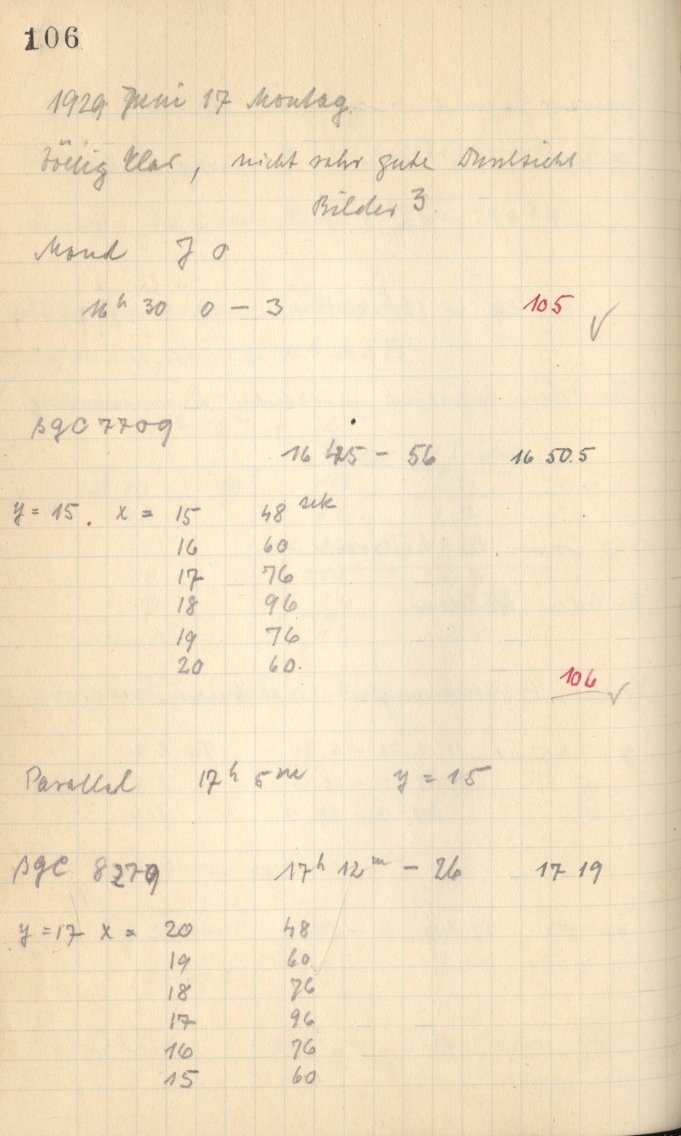 106
1929 Juni 17 Montag
Völlig klar, nicht sehr gute Durchsicht
Bilder 3.
Mond J 0
16h 30 0 – 3 105 ✓
βGC 7709
16 45 – 56 16 50.5
y = 15 x = 15 48 sek
16 60
17 76
18 96
19 76
20 60
106 ✓
Parallel 17h 5m y = 15
βGC 8279
17h 12m – 26 17 19
y = 17 x = 20 48
19 60
18 76
17 96
16 76
15 60